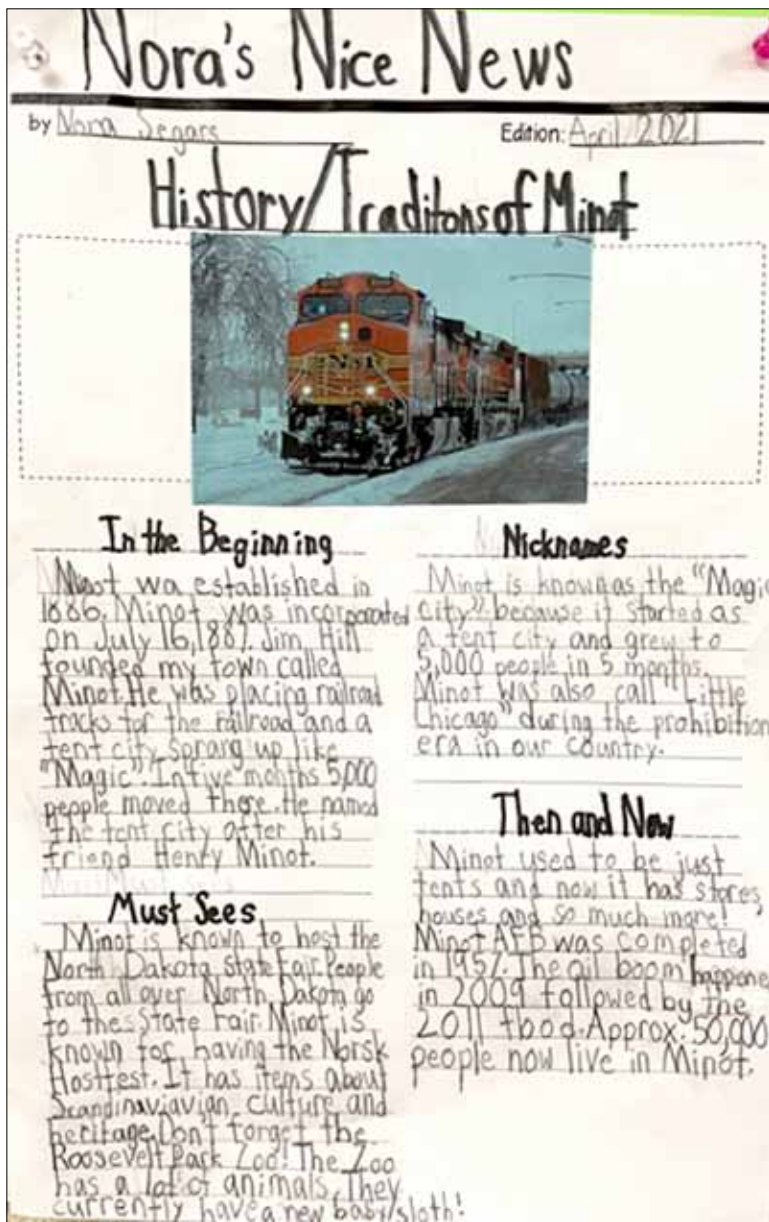 Nora's Nice News
by Nora Segars
Edition: April 2021
History/Traditons of Minot
In the Beginning
Minot wa established in
1886. Minot was incorporated
on July 16, 1887. Jim Hill
founded my town called
Minot. He was placing railroad
tracks for the railroad and a
tent city sprang up like
"Magic". In five months 5,000
people moved there. He named
the tent city after his
friend Henry Minot.
Must Sees
Minot is known to host the
North Dakota State Fair. People
from all over North Dakota go
to the State Fair. Minot is
known for having the Norsk
Hostfest. It has items about
Scandinaviavian culture and
heritage. Don't forget the
Roosevelt Park Zoo! The Zoo
has a lot of animals. They
currently have a new baby sloth!
Nicknames
Minot is known as the "Magic
City" because it started as
a tent city and grew to
5,000 people in 5 months.
Minot was also call "Little
Chicago" during the prohibition
era in our country.
Then and Now
Minot used to be just
tents and now it has stores,
houses and so much more!
Minot AFB was completed
in 1957. The oil boom happened
in 2009 followed by the
2011 flood. Approx. 50,000
people now live in Minot.